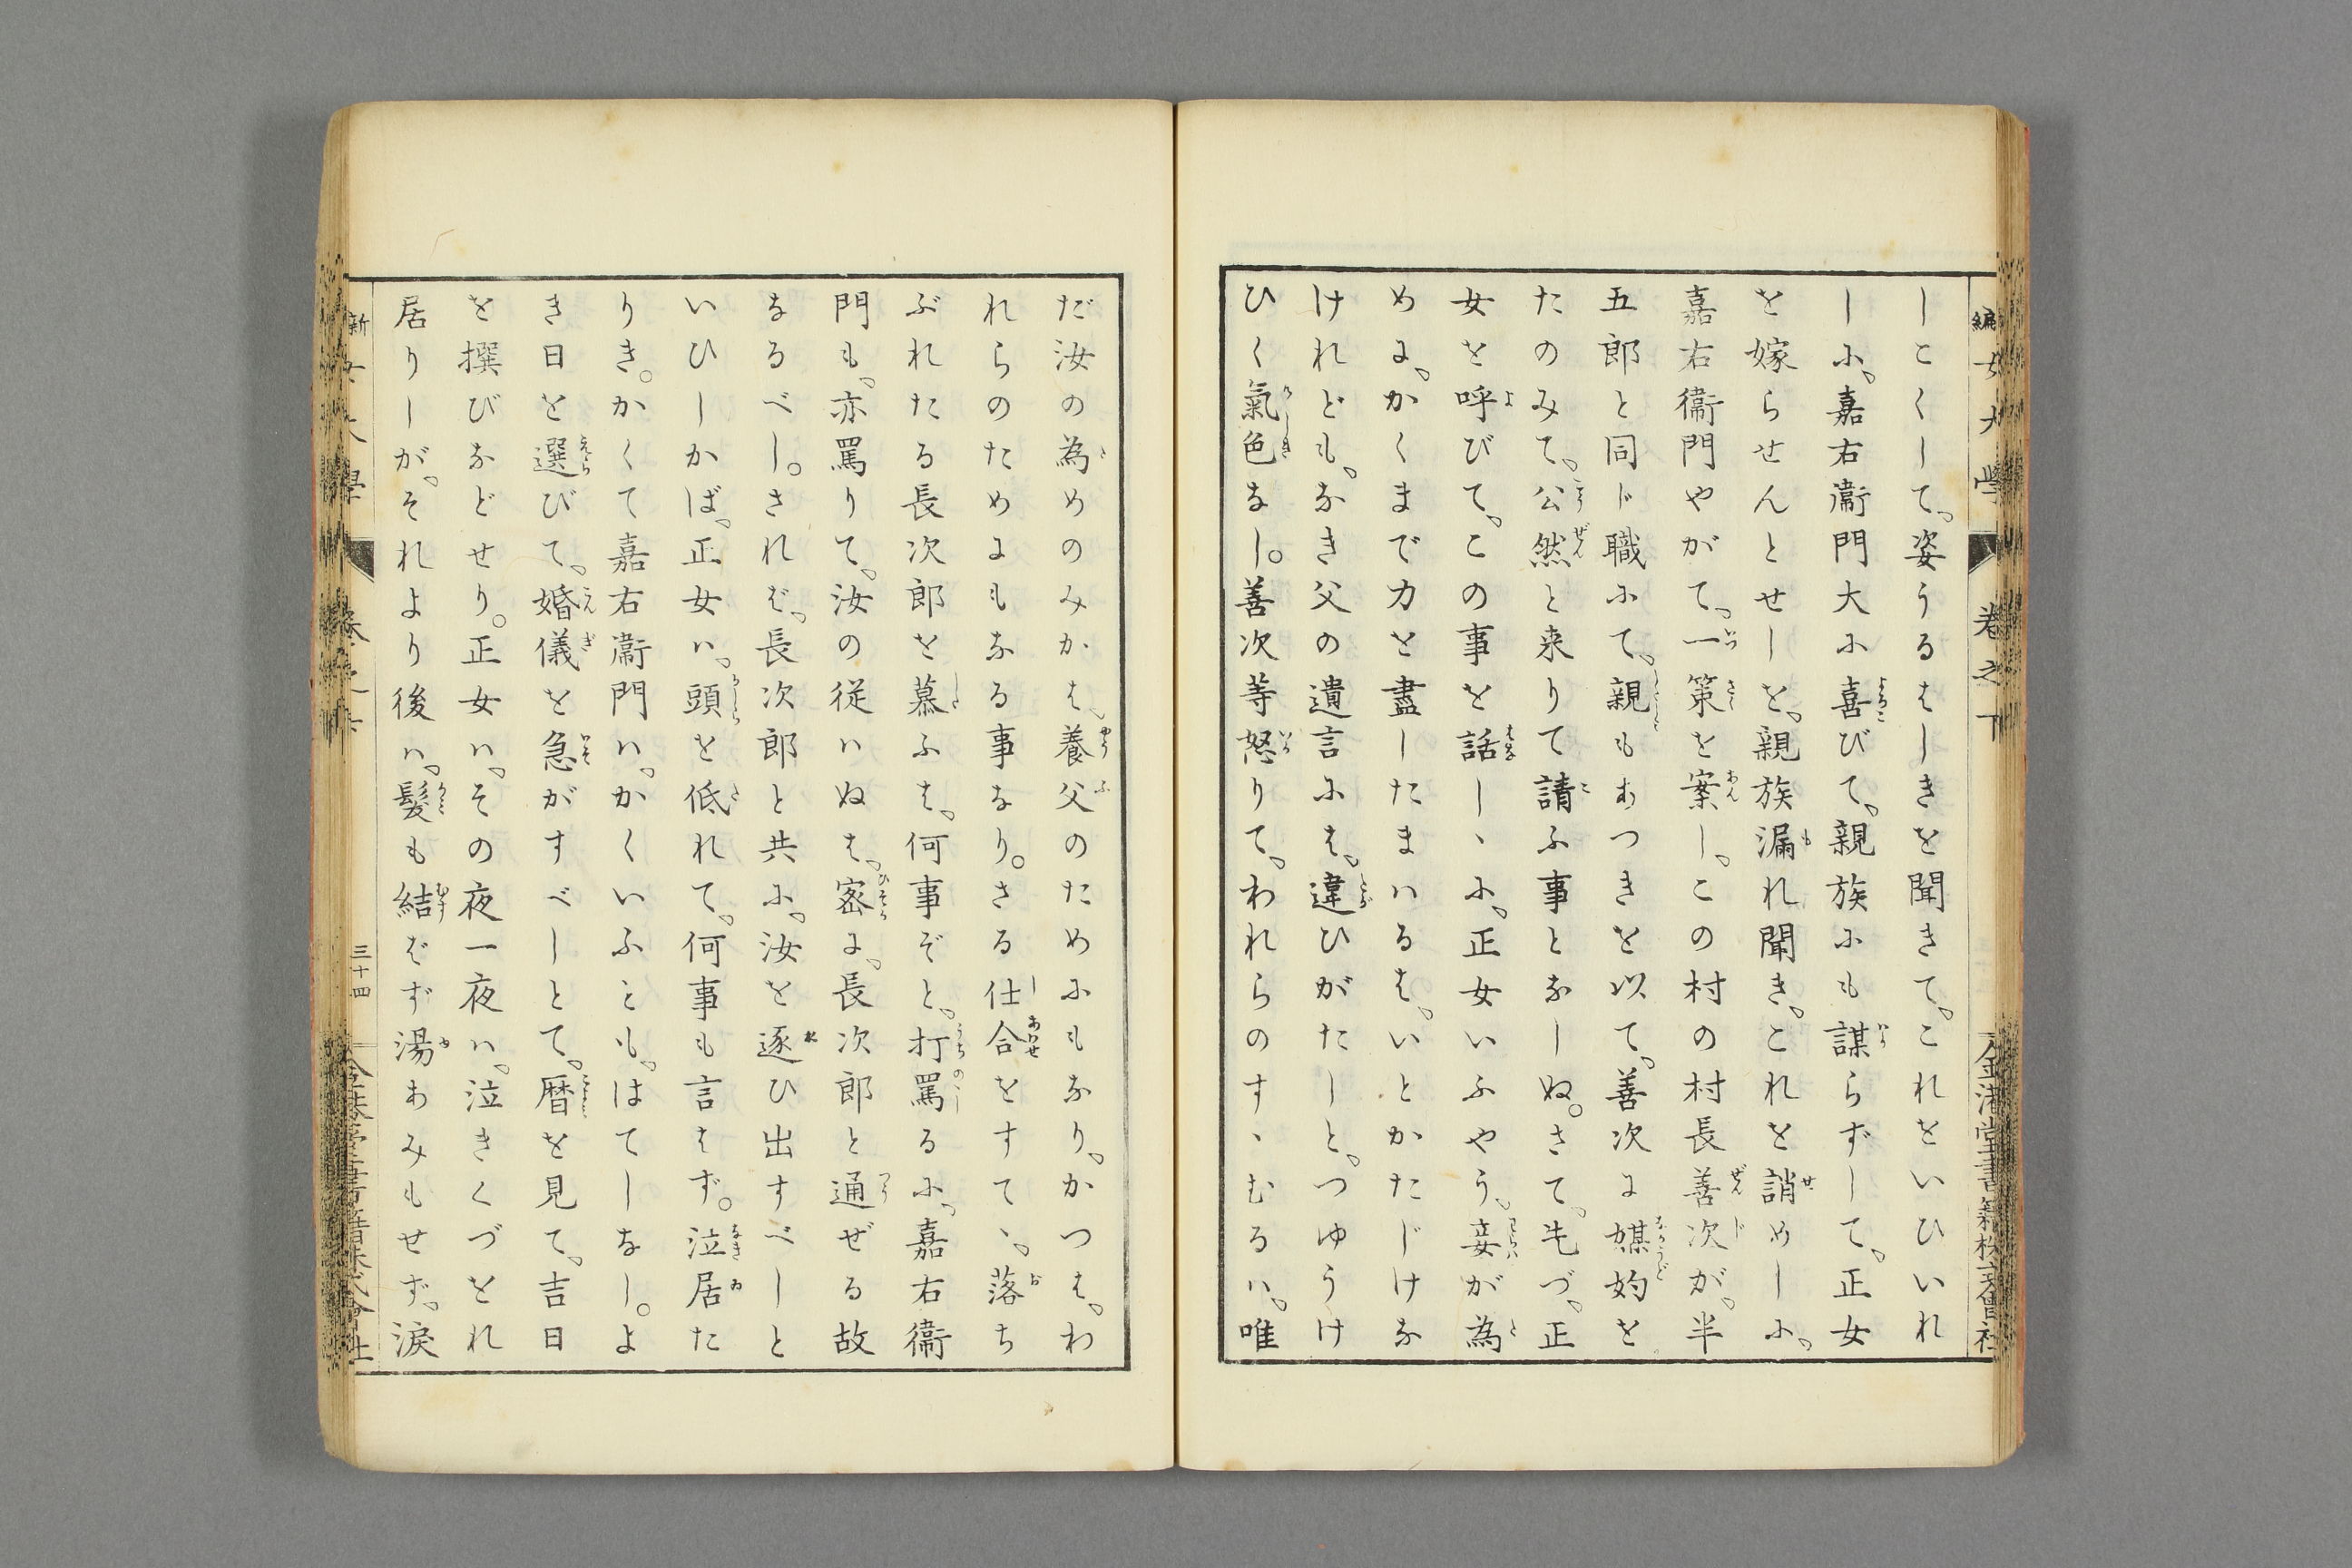 しこくして、姿うるはしきを聞きて、これをいひいれ
しに、嘉右衞門大に喜びて、親族にも謀らずして、正女
を嫁らせんとせしを、親族漏れ聞き、これを誚めしに、
嘉右衞門やがて、一策を案し、この村の村長善次が、半
五郎と同じ職にて、親もあつきを以て、善次に媒妁を
たのみて、公然と来りて請ふ事となしぬ。さて、先づ、正
女を呼びて、この事を話しゝに、正女いふやう、妾が為
めに、かくまで力を盡したまはるは、いとかたじけな
けれども、なき父の遺言には、違ひがたしと、つゆうけ
ひく氣色なし。善次等怒りて、われらのすゝむるは、唯
だ汝の為めのみかは、養父のためにもなり、かつは、わ
れらのためにもなる事なり。さる仕合をすてゝ、落ち
ぶれたる長次郎を慕ふは、何事ぞと、打罵るに、嘉右衞
門も、亦罵りて、汝の従はぬは、密に、長次郎と通ぜる故
なるべし。されば、長次郎と共に、汝を逐ひ出すべしと
いひしかば、正女は、頭を低れて、何事も言はず。泣居た
りき。かくて嘉右衞門は、かくいふとも、はてしなし。よ
き日を選びて、婚儀を急がすべしとて、暦を見て、吉日
を撰びなどせり。正女は、その夜一夜は、泣きくづをれ
居りしが、それより後は、髮も結ばず湯あみもせず、涙
三十四